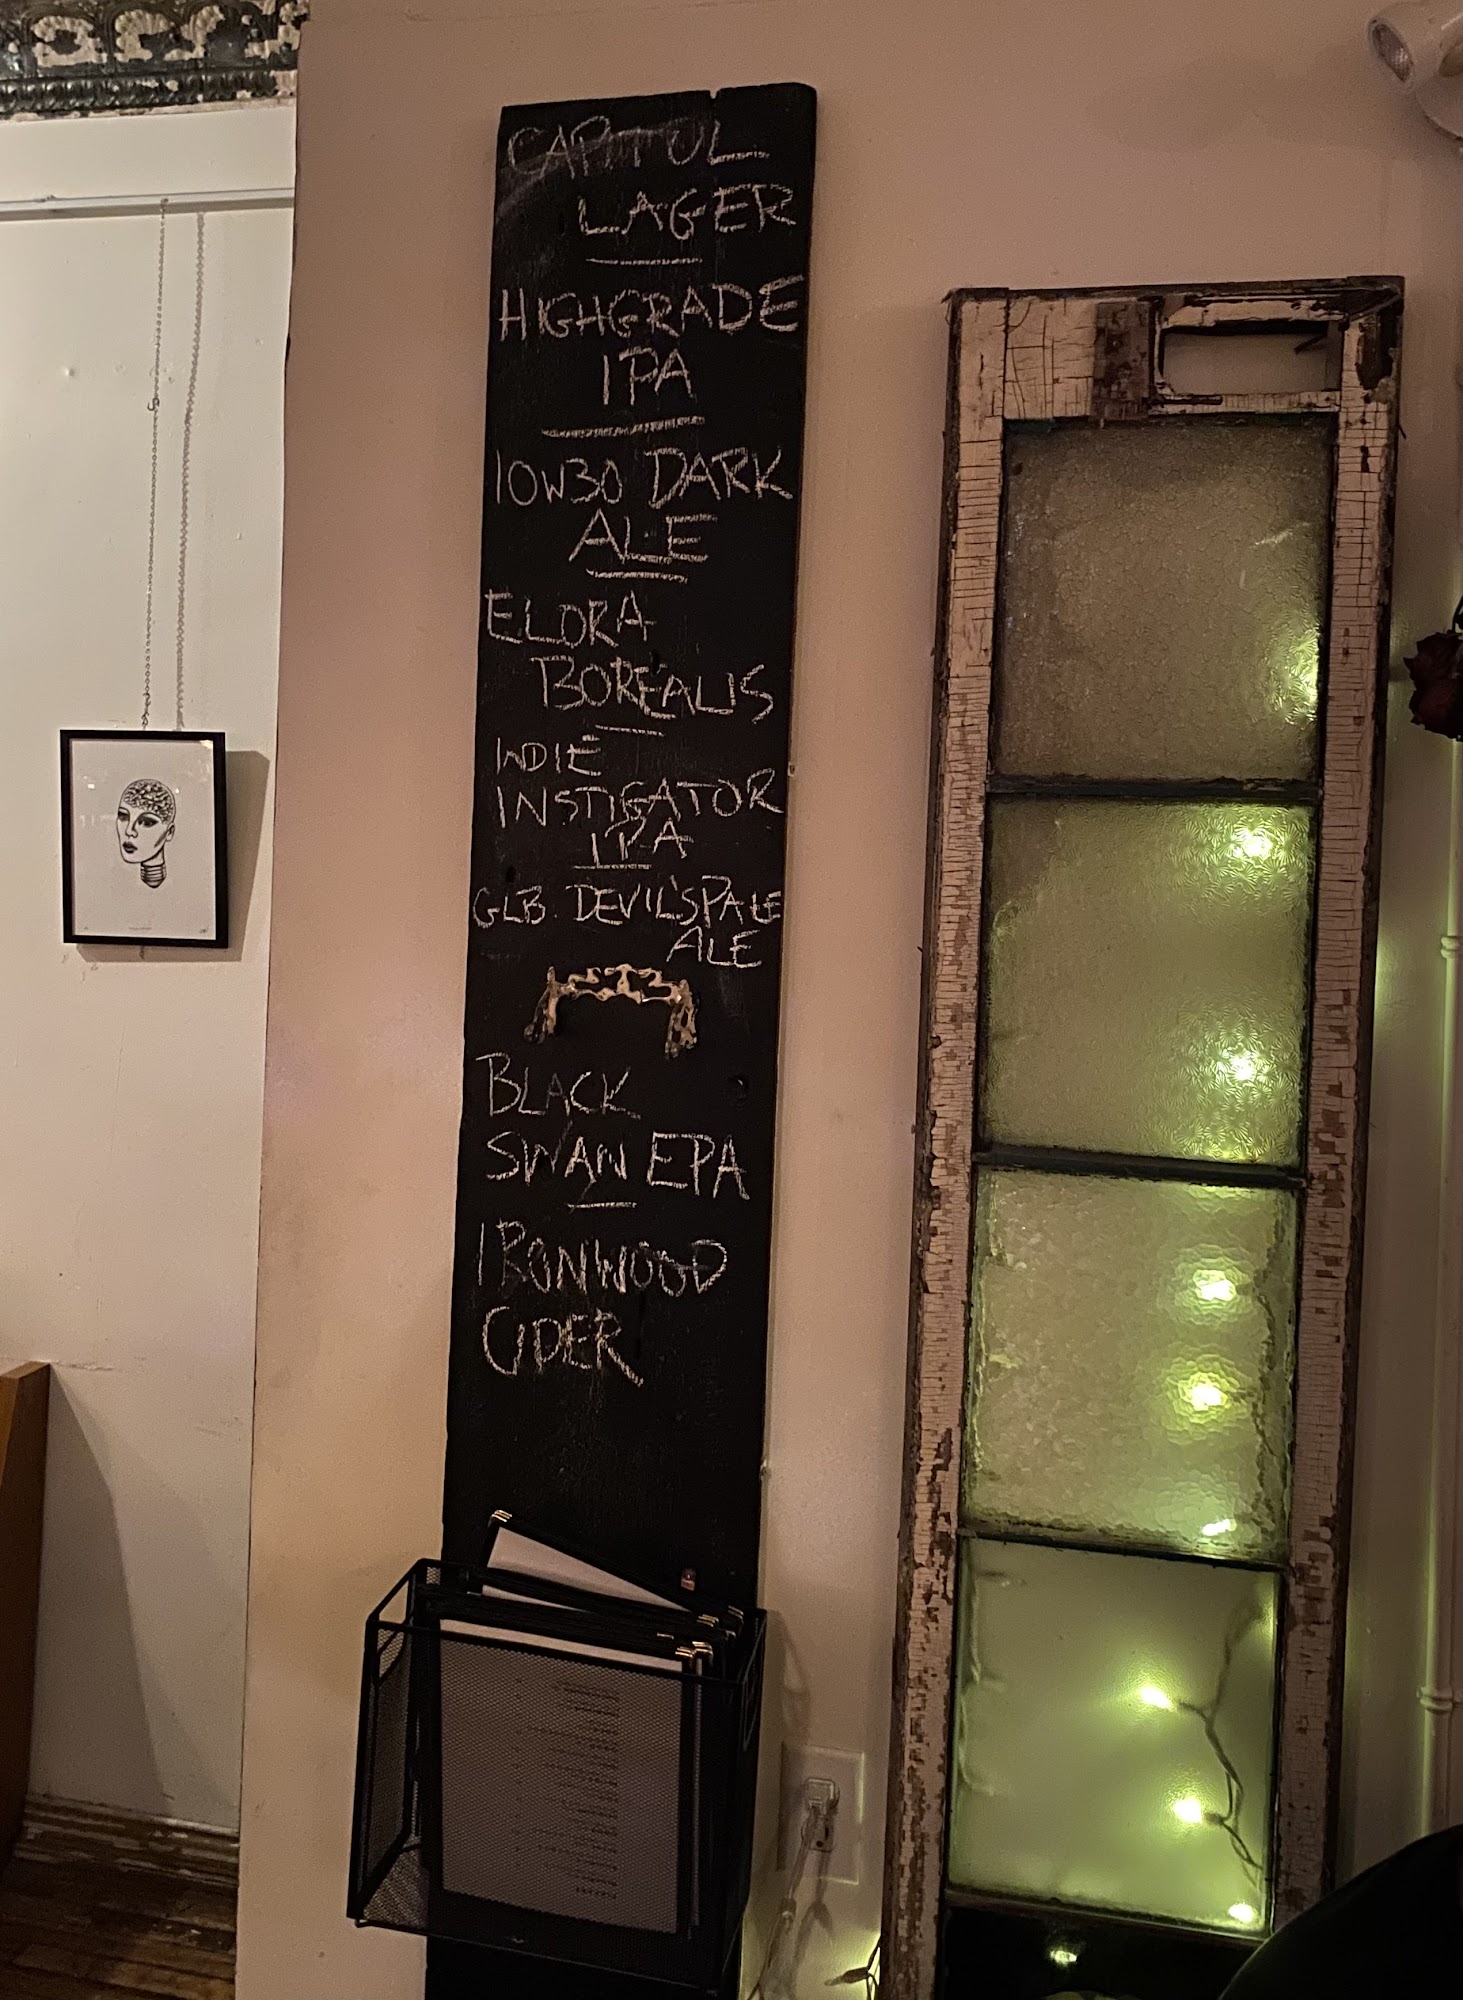 CAPITOL
LAGER
HIGHGRADE
IPA
10W30 DARK
ALE
ELORA
BOREALIS
INDIE
INSTIGATOR
IPA
GLB DEVIL'S PALE
ALE
BLACK
SWAN EPA
IRONWOOD
CIDER